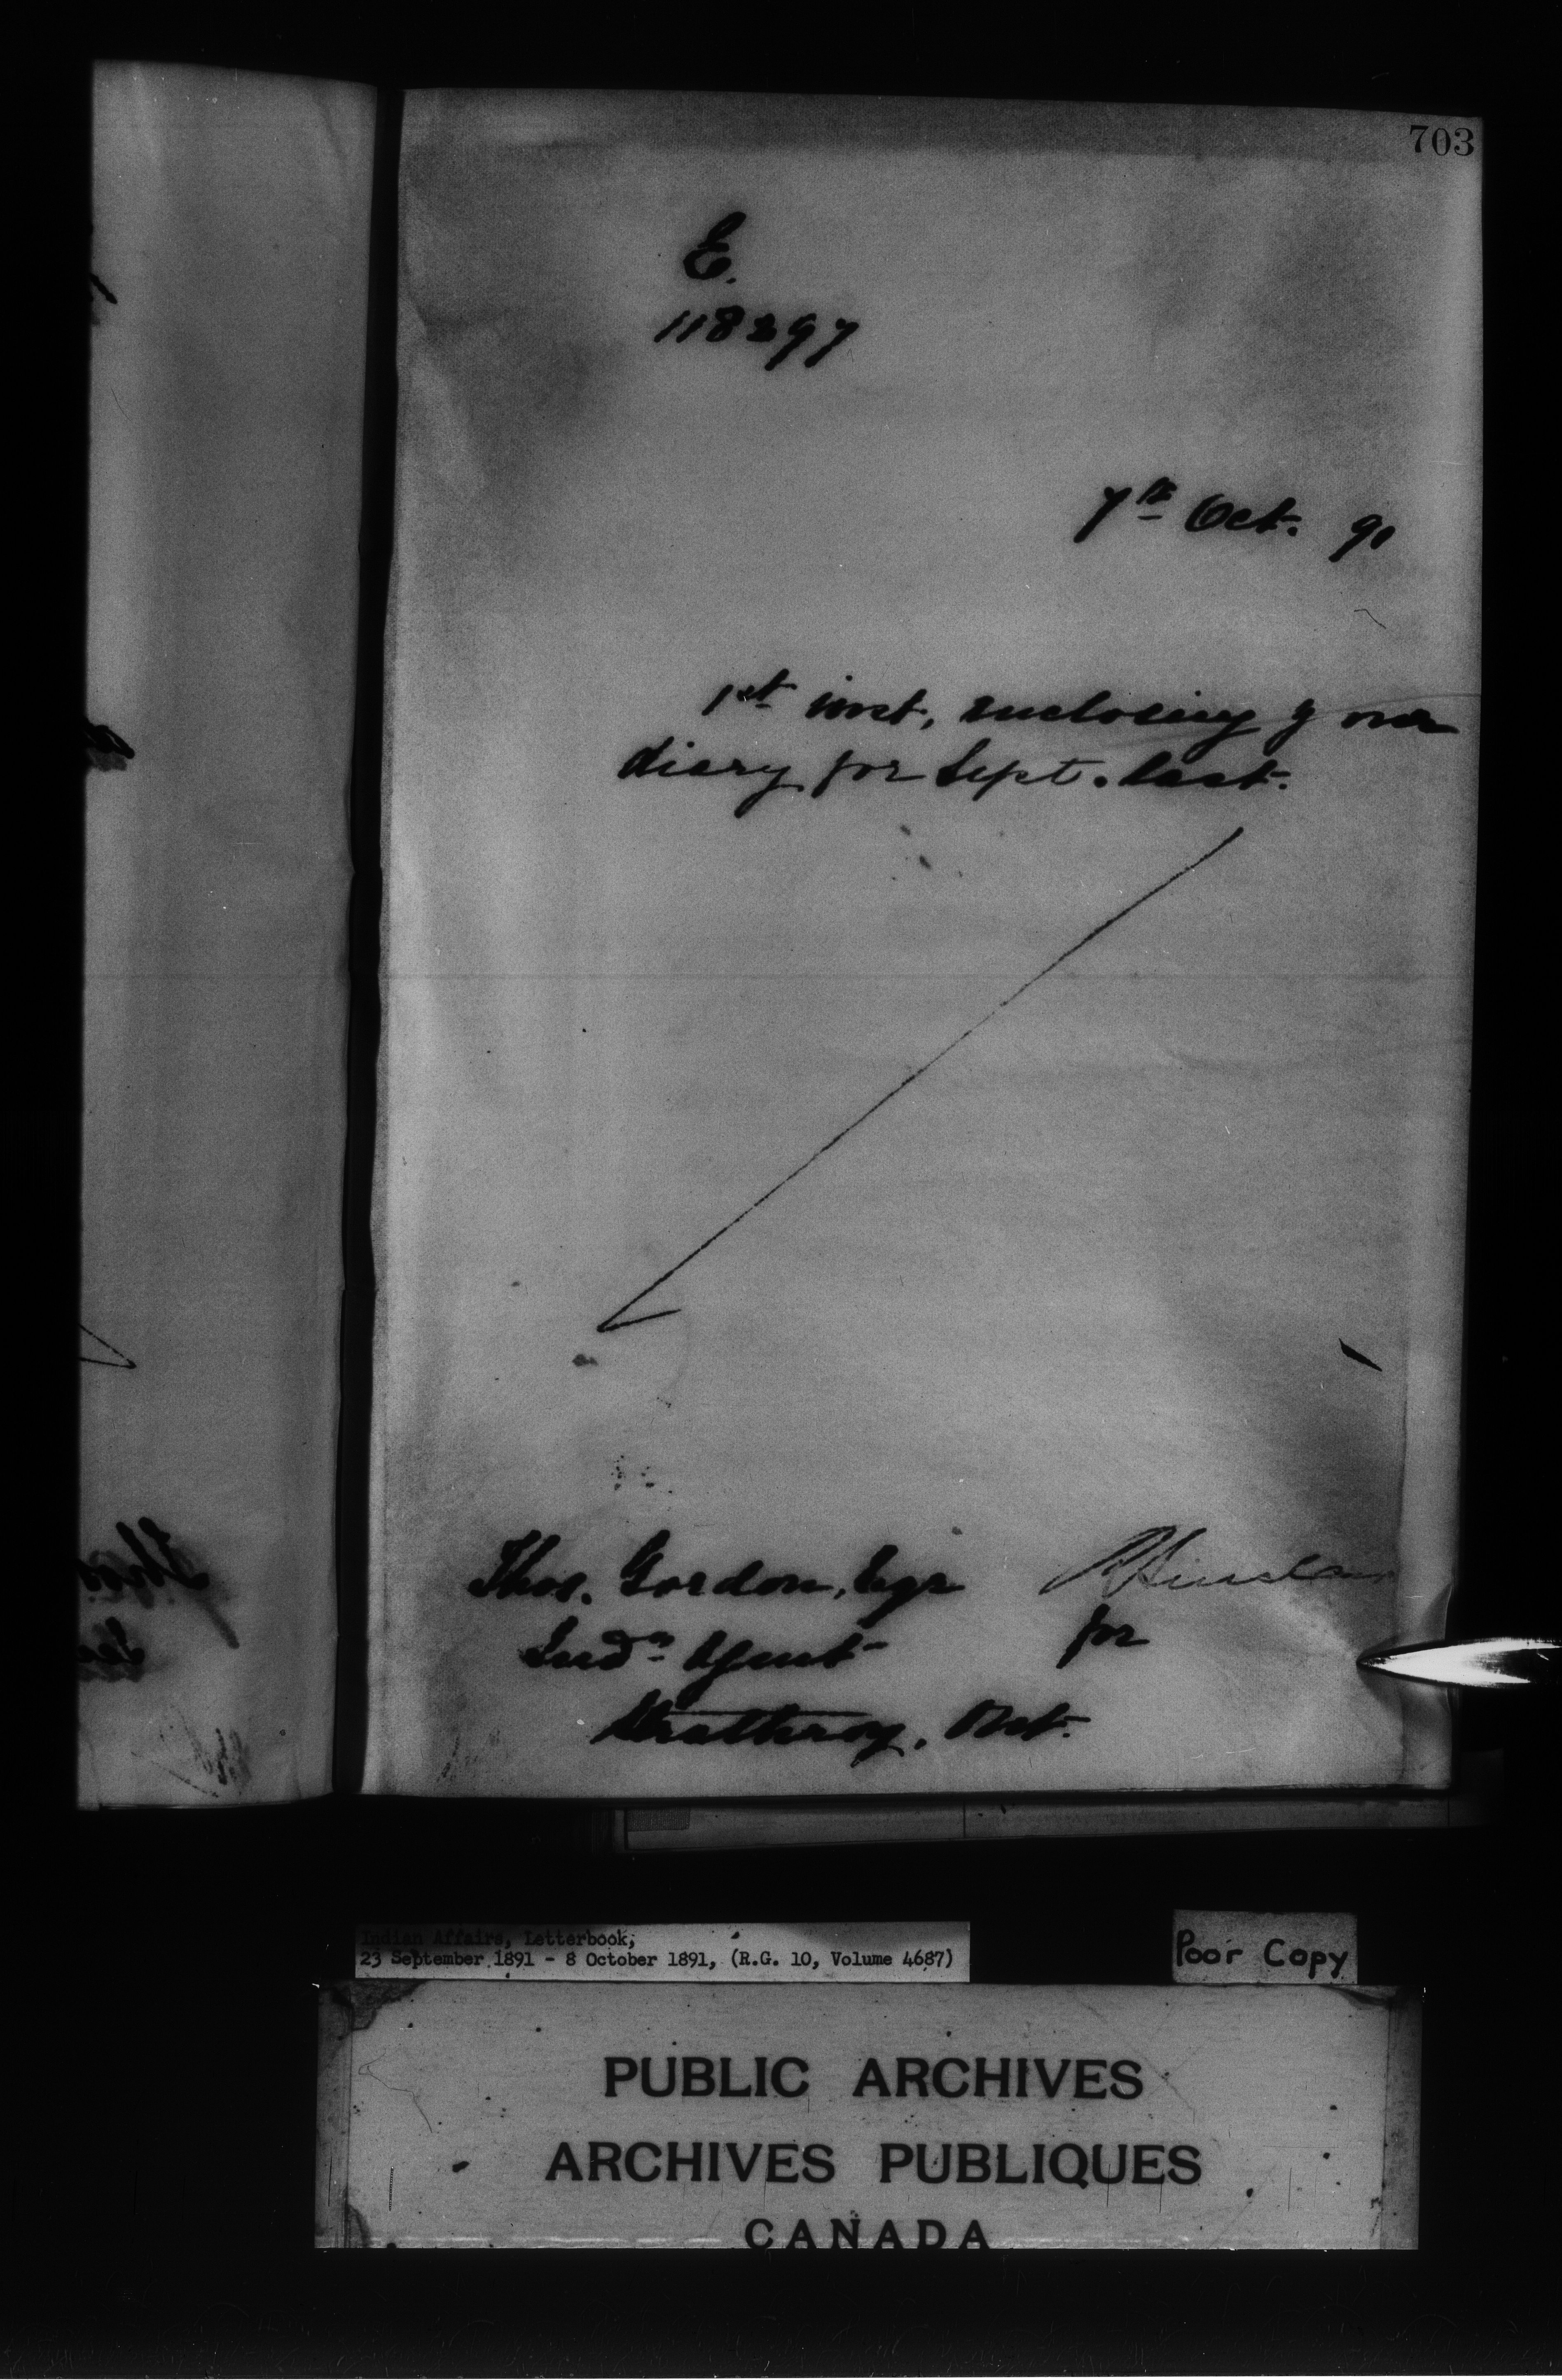 703
E.
118297
7th Oct. 91
1st inst, enclosing your
diary for Sept. last.
Thos. Gordon, Esqr
for
Indn Agent
Strathroy, Ont.
Indian Affairs, Letterbook,
23 September 1891 - 8 October 1891, (R.G. 10, Volume 4687)
Poor Copy
PUBLIC ARCHIVES
ARCHIVES PUBLIQUES
CANADA